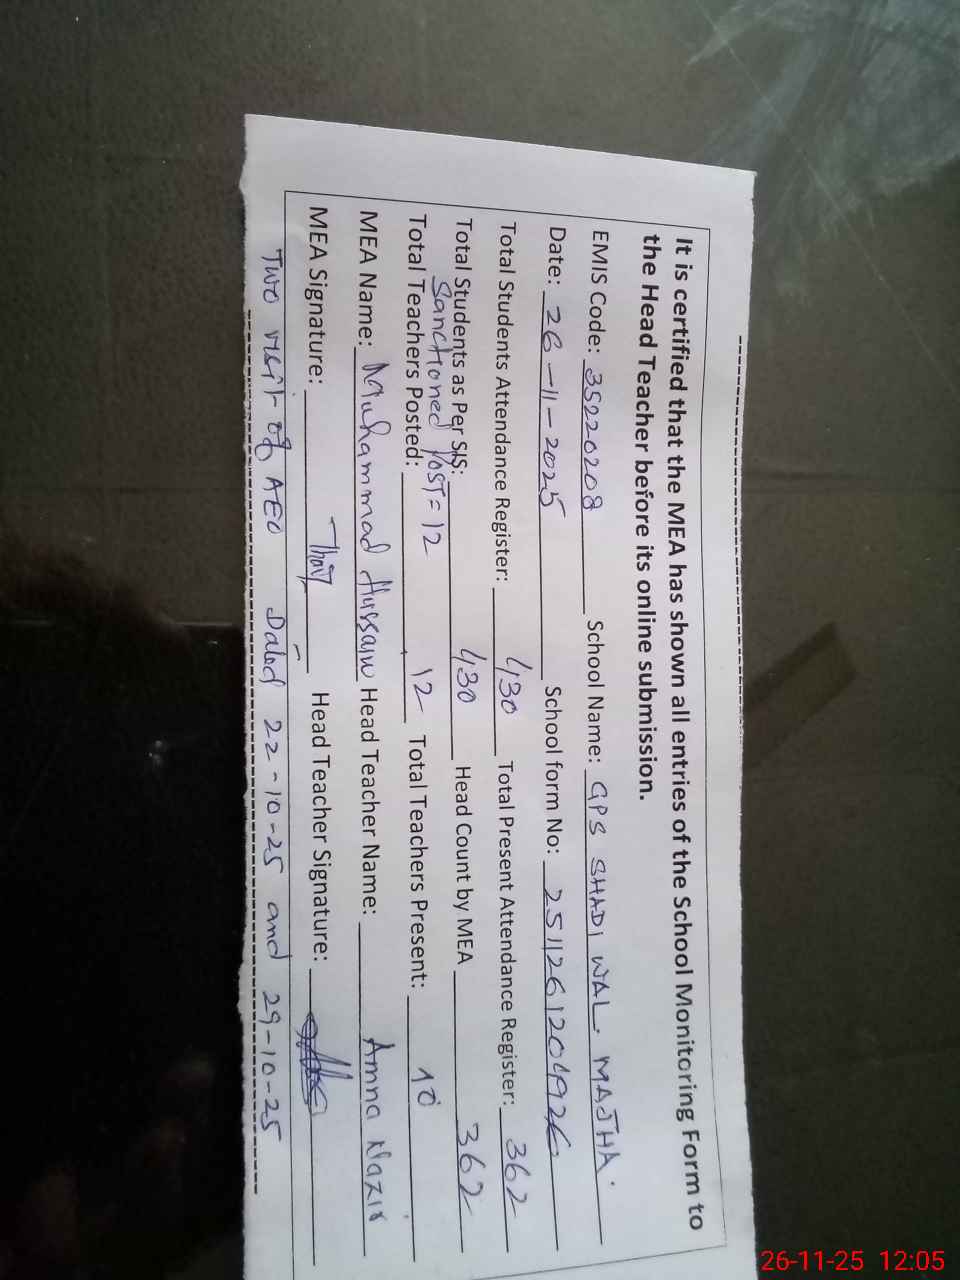 It is certified that the MEA has shown all entries of the School Monitoring Form to
the Head Teacher before its online submission.
EMIS Code: 35220208 School Name: GPS SHADI WAL. MAJHA.
Date: 26-11-2025 School form No: 251126120492
Total Students Attendance Register: 430 Total Present Attendance Register: 362
Total Students as Per SIS: 430 Head Count by MEA 362
Sanctioned Post = 12
Total Teachers Posted: 12 Total Teachers Present: 10
MEA Name: Muhammad Hussain Head Teacher Name: Amna Nazir
MEA Signature: Head Teacher Signature:
Two visit of AEO Dated 22-10-25 and 29-10-25
26-11-25 12:05